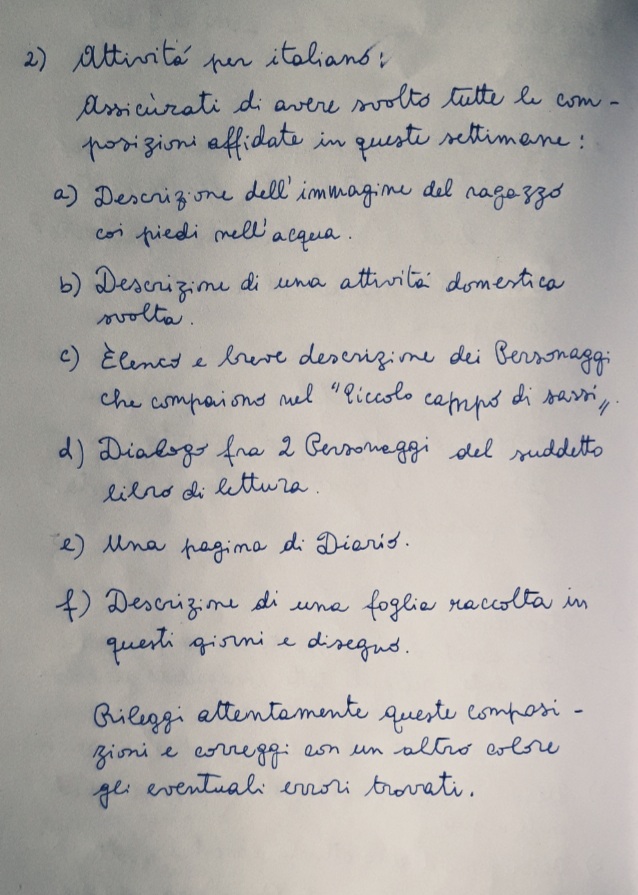 2) Attività per italiano:
Assicurati di avere svolto tutte le com-
posizioni affidate in queste settimane:
a) Descrizione dell'immagine del ragazzo
coi piedi nell'acqua.
b) Descrizione di una attività domestica
svolta.
c) Elenco e breve descrizione dei Personaggi
che compaiono nel "Piccolo campo di sassi".
d) Dialogo fra 2 Personaggi del suddetto
libro di lettura.
e) Una pagina di Diario.
f) Descrizione di una foglia raccolta in
questi giorni e disegno.
Rileggi attentamente queste composi-
zioni e correggi con un altro colore
gli eventuali errori trovati.